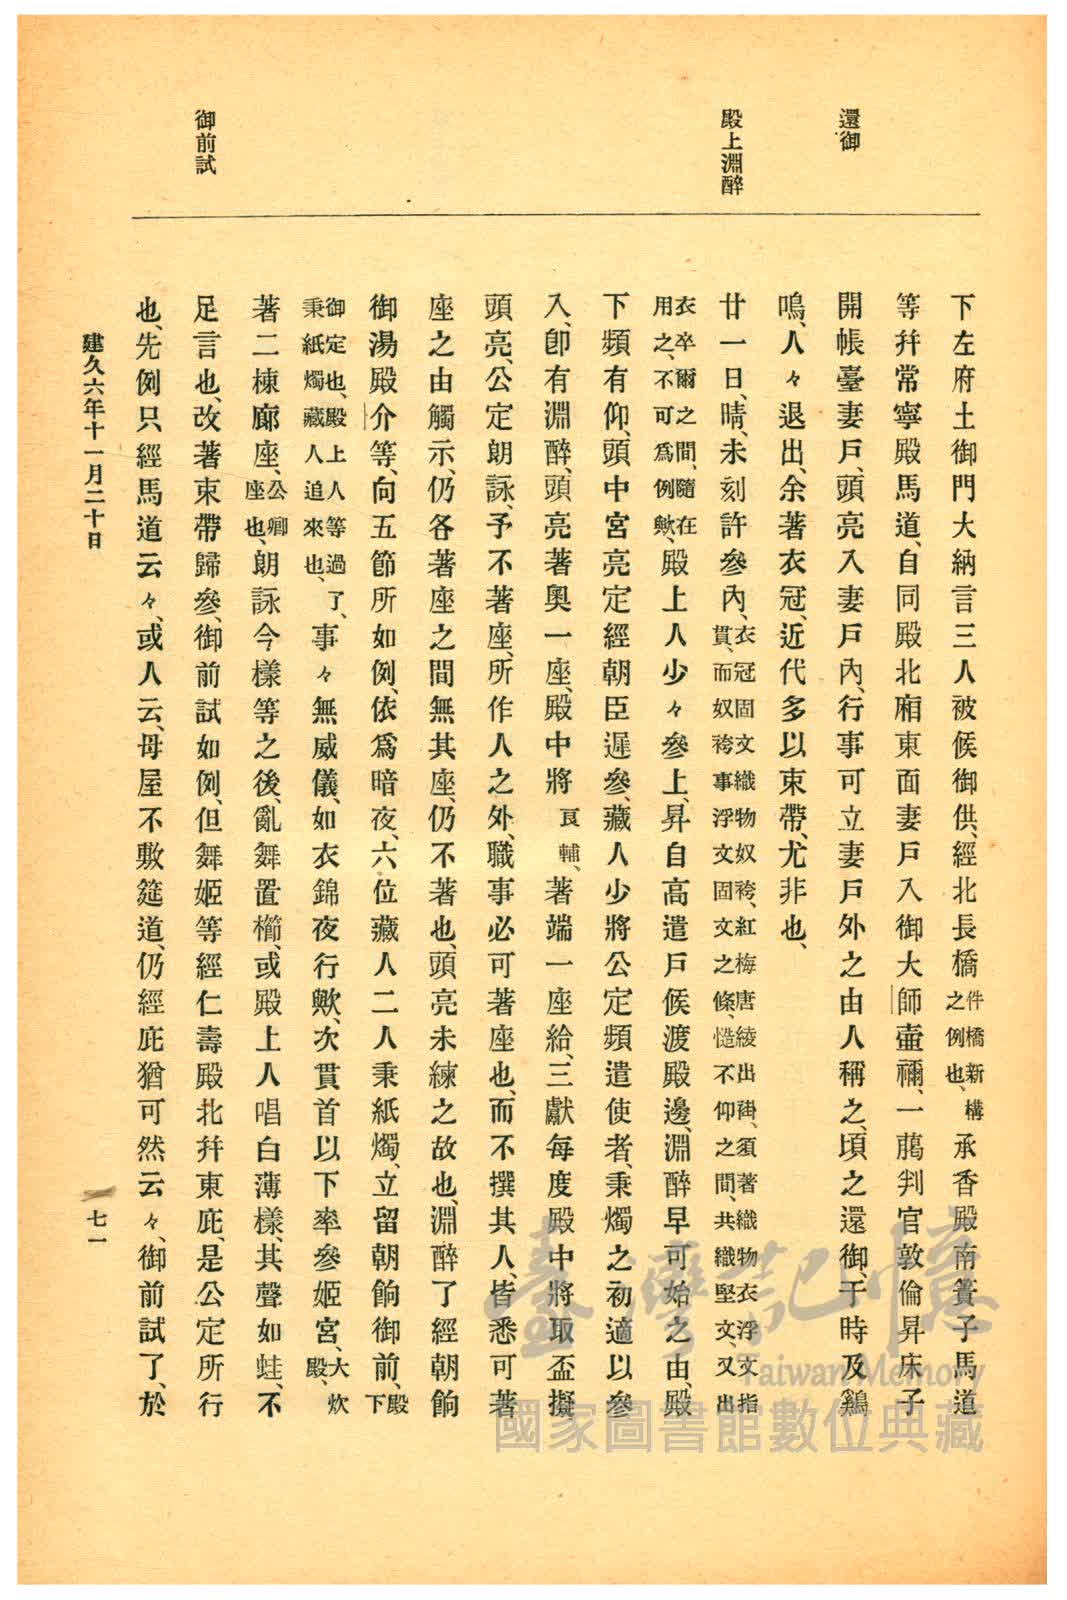 還御
殿上淵醉
御前試
下左府土御門大納言三人被候御供、經北長橋件橋新構之例也、承香殿南簀子馬道
等幷常寧殿馬道、自同殿北廂東面妻戶入御大師壷禰、一﨟判官敦倫昇床子
開帳臺妻戶、頭亮入妻戶內、行事可立妻戶外之由人稱之、頃之還御、于時及鷄
鳴、人々退出、余著衣冠、近代多以束帶、尤非也、
廿一日、晴、未刻許參內、衣冠固文織物奴袴、紅梅唐綾出褂、須著織物衣浮文指貫、而奴袴事浮文固文之條、慥不仰之間、共織堅文、又出
衣卒爾之間、隨在用之、不可爲例歟、殿上人少々參上、昇自高遣戶候渡殿邊、淵醉早可始之由、殿
下頻有仰、頭中宮亮定經朝臣遲參、藏人少將公定頻遣使者、秉燭之初適以參
入、卽有淵醉、頭亮著奧一座、殿中將良輔、著端一座給、三獻每度殿中將取盃擬
頭亮、公定朗詠、予不著座、所作人之外、職事必可著座也、而不撰其人、皆悉可著
座之由觸示、仍各著座之間無其座、仍不著也、頭亮未練之故也、淵醉了經朝餉
御湯殿介等、向五節所如例、依爲暗夜、六位藏人二人秉紙燭、立留朝餉御前、殿下
御定也、殿上人等過秉紙燭藏人追來也、了、事々無威儀、如衣錦夜行歟、次貫首以下率參姬宮、大炊殿、
著二棟廊座、公卿座也、朗詠今樣等之後、亂舞置櫛、或殿上人唱白薄樣、其聲如蛙、不
足言也、改著束帶歸參、御前試如例、但舞姬等經仁壽殿北幷東庇、是公定所行
也、先例只經馬道云々、或人云、母屋不敷筵道、仍經庇猶可然云々、御前試了、於
建久六年十一月二十日
七一
臺灣記憶
Taiwan Memory
國家圖書館數位典藏